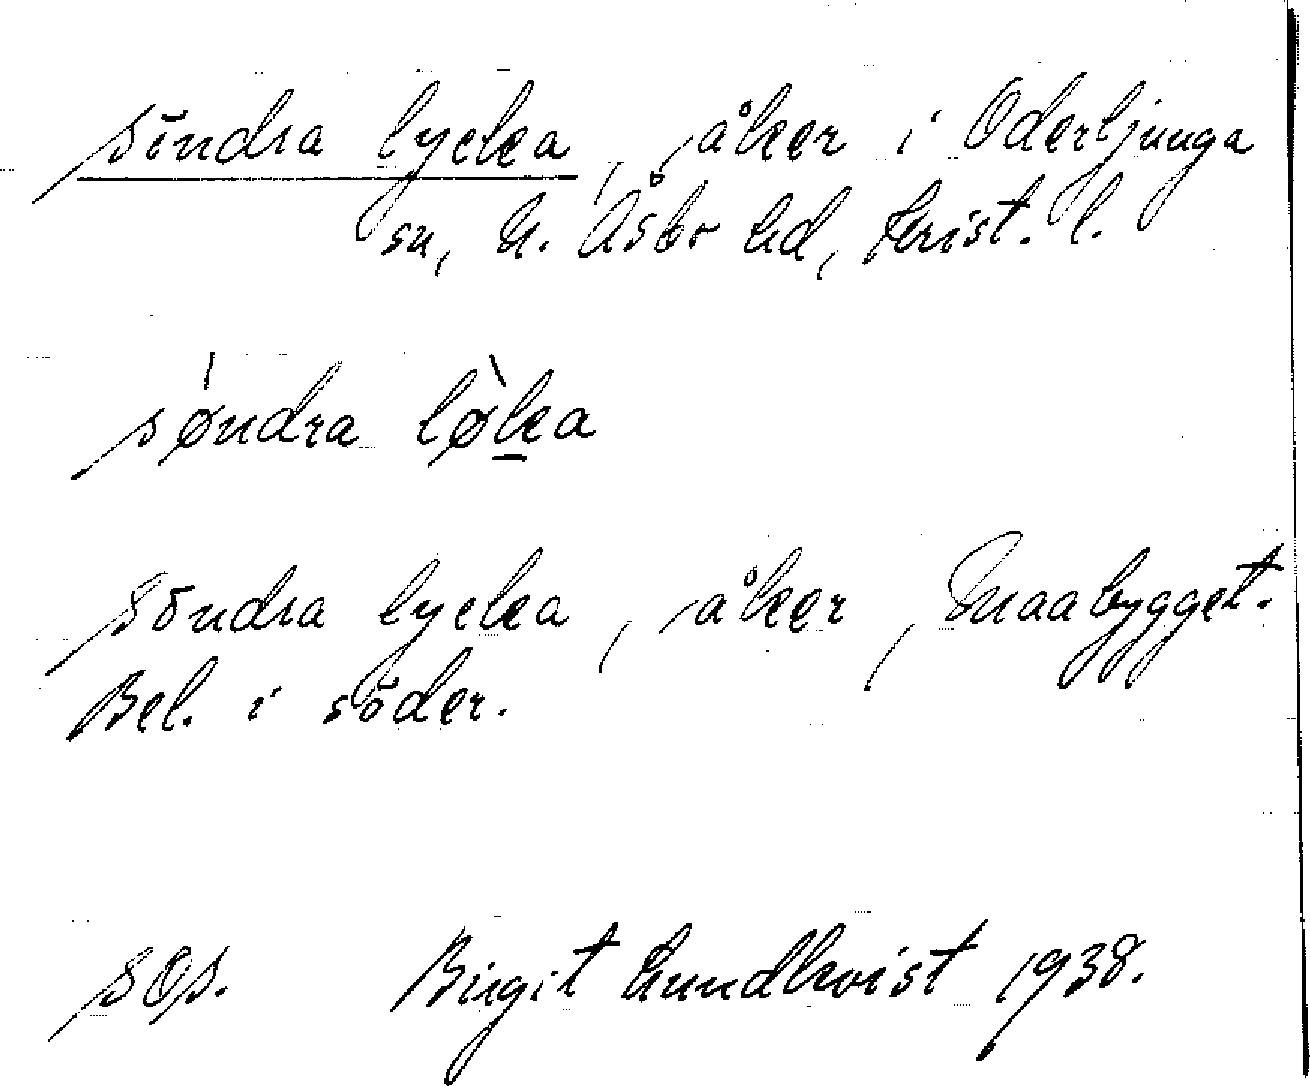 söndra lycka, åker i Oderljunga
sn, N. Åsbo hd, Krist. l.
söndra løka
söndra lycka, åker, Smaabygget.
Bel. i söder.
sOs. Birgit Lundkvist 1938.